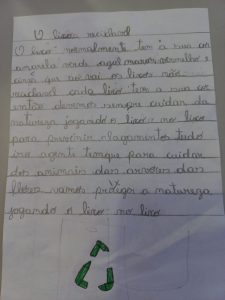 O lixo reciclavel
O lixo normalmente tem a sua cor
amarela verde azul marrom vermelho e
cinza que só vai os lixos não
reciclavel cada lixo tem a sua cor
então devemos sempre cuidar da
natureza jogando o lixo no lixo
para previnir alagamentos tudo
isso agente temos que para cuidar
dos animais das arvores das
flores vamos proteger a natureza
jogando o lixo no lixo